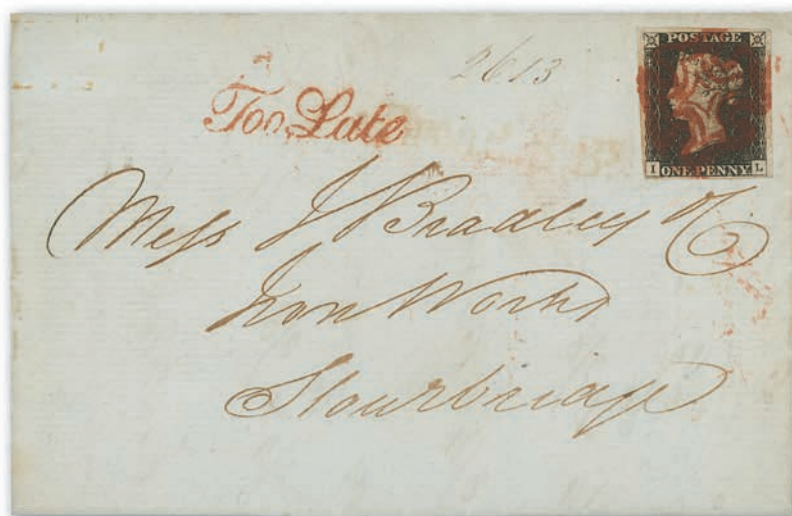 2613
POSTAGE
Too Late
I ONE PENNY L
Mess J Bradley & Co
Iron Works
Stourbridge